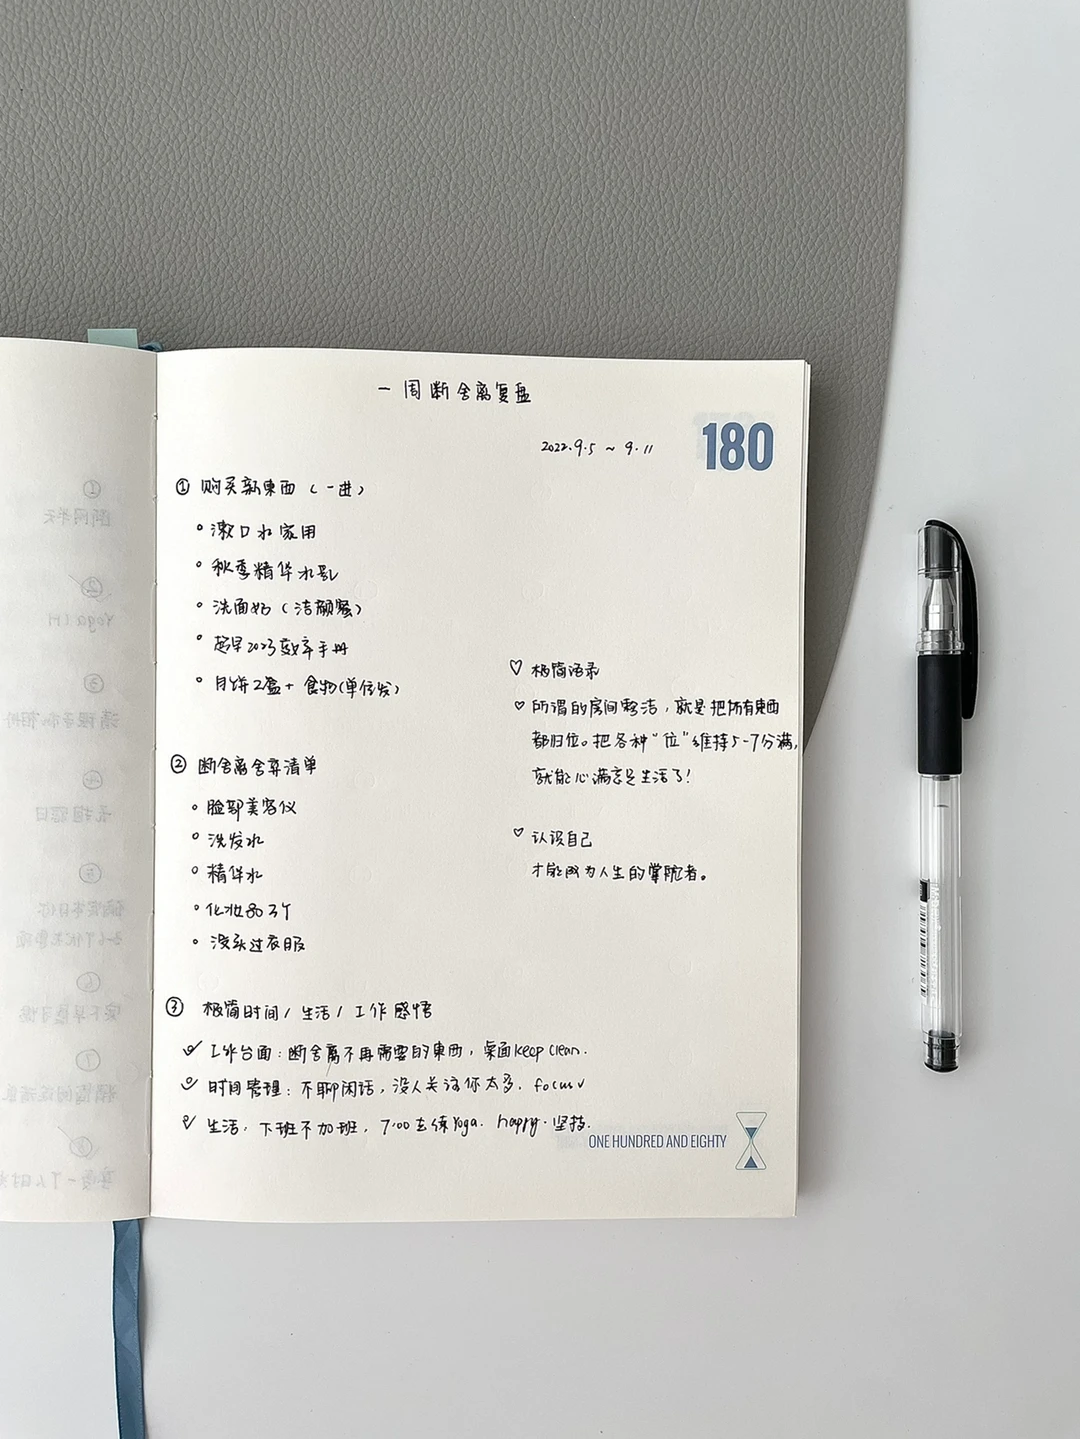 一周断舍离复盘
2022.9.5 ~ 9.11
180
① 购买新東西（一进）
漱口水家用
秋季精华水乳
洗面奶（洁颜蜜）
趁早2023效率手册
月饼2盒+食物(单位发)
② 断舍离舍弃清单
脸部美容仪
洗发水
精华水
化妆品3个
没买过衣服
③ 极简时间/生活/工作感悟
工作台面：断舍离不再需要的東西，桌面keep clean.
时间管理：不聊闲话，没人关注你太多. focus
生活，下班不加班，7:00去练Yoga. happy.坚持.
♡ 极简语录
♡ 所谓的房间整洁，就是把所有東西
都归位。把各种“位”维持5-7分满，
就能心满意足生活了！
♡ 认识自己
才能成为人生的掌舵者。
ONE HUNDRED AND EIGHTY